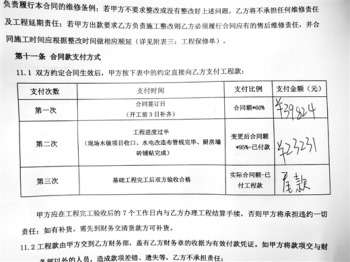 负责履行本合同的维修条例；若甲方不要求整改或没有整改好上述问题，乙方将不承担任何维修责任
及工程延期责任；若甲方出款要求乙方负责施工整改则乙方必须履行合同应有的售后维修责任，并合
同施工时间应根据整改时间做相应顺延（详见附表三：工程保修单）。
第十一条 合同款支付方式
11.1 双方约定合同生效后，甲方按下表中的约定直接向乙方支付工程款：
支付次数 支付时间 支付比例 支付金额（元）
第一次 合同签订日
（开工前 3 日补齐） 合同额*60% ¥39824
第二次 工程进度过半
（现场木做项目收口、水电改造布管线完毕、厨房墙
砖铺贴完成） 变更后合同额
*95%-已付款 ¥23231
第三次 基础工程完工后双方验收合格 实际合同额-已
付工程款 尾款
甲方应在工程完工验收后的 7 个工作日内与乙方办理工程结算手续。否则甲方将承担违约一切
责任；如有补货，需先到财务交清货款方可补货。
11.2 工程款由甲方交到乙方财务部，盖有乙方财务章的收据为有效付款凭证。如甲方将款项交与财
务部以外的人员，造成款项差错、遗失等，乙方不承担责任；